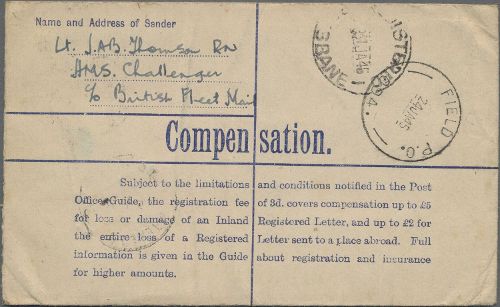 Name and Address of Sender
Lt. J.A.B. Thomson RN
HMS. Challenger
c/o British Fleet Mail
BANE
FIELD P.O.
24JA45
Compensation.
Subject to the limitations and conditions notified in the Post
Office Guide, the registration fee of 3d. covers compensation up to £5
for loss or damage of an Inland Registered Letter, and up to £2 for
the entire loss of a Registered Letter sent to a place abroad. Full
information is given in the Guide about registration and insurance
for higher amounts.